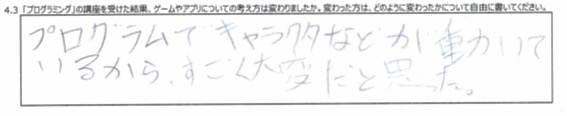 4.3 「プログラミング」の講座を受けた結果、ゲームやアプリについての考え方は変わりましたか。変わった方は、どのように変わったかについて自由に書いてください。
プログラムでキャラクタなどが動いて
いるから、すごく大変だと思った。